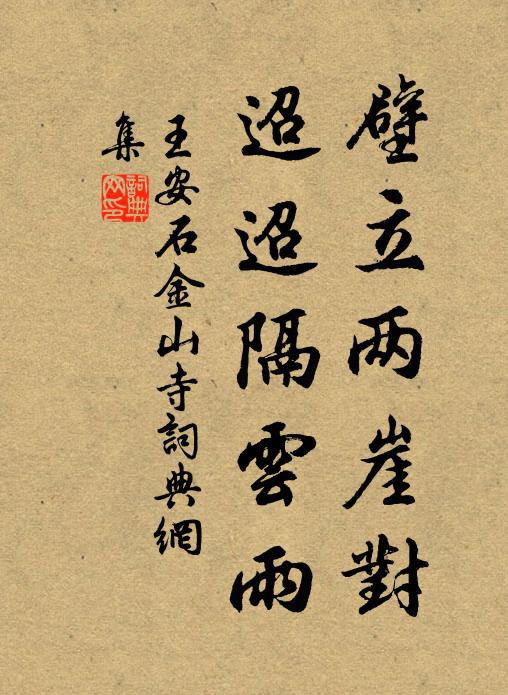 壁立两崖對
迢迢隔雲雨
王安石金山寺詞典網
集
詞典網印